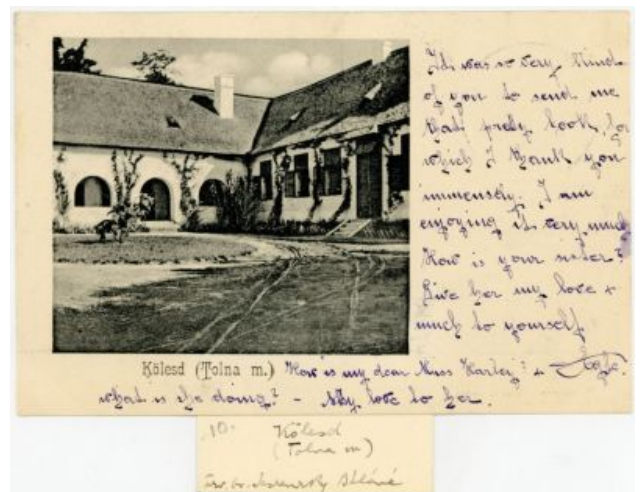 It was so very kind
of you to send me
that prety book, for
which I thank you
immensely. I am
enjoying it very much
How is your sister?
Give her my love +
much to yourself
Kölesd (Tolna m.) How is my dear Miss Harley? +
what is she doing? - My love to her.
10. Kölesd
(Tolna m)